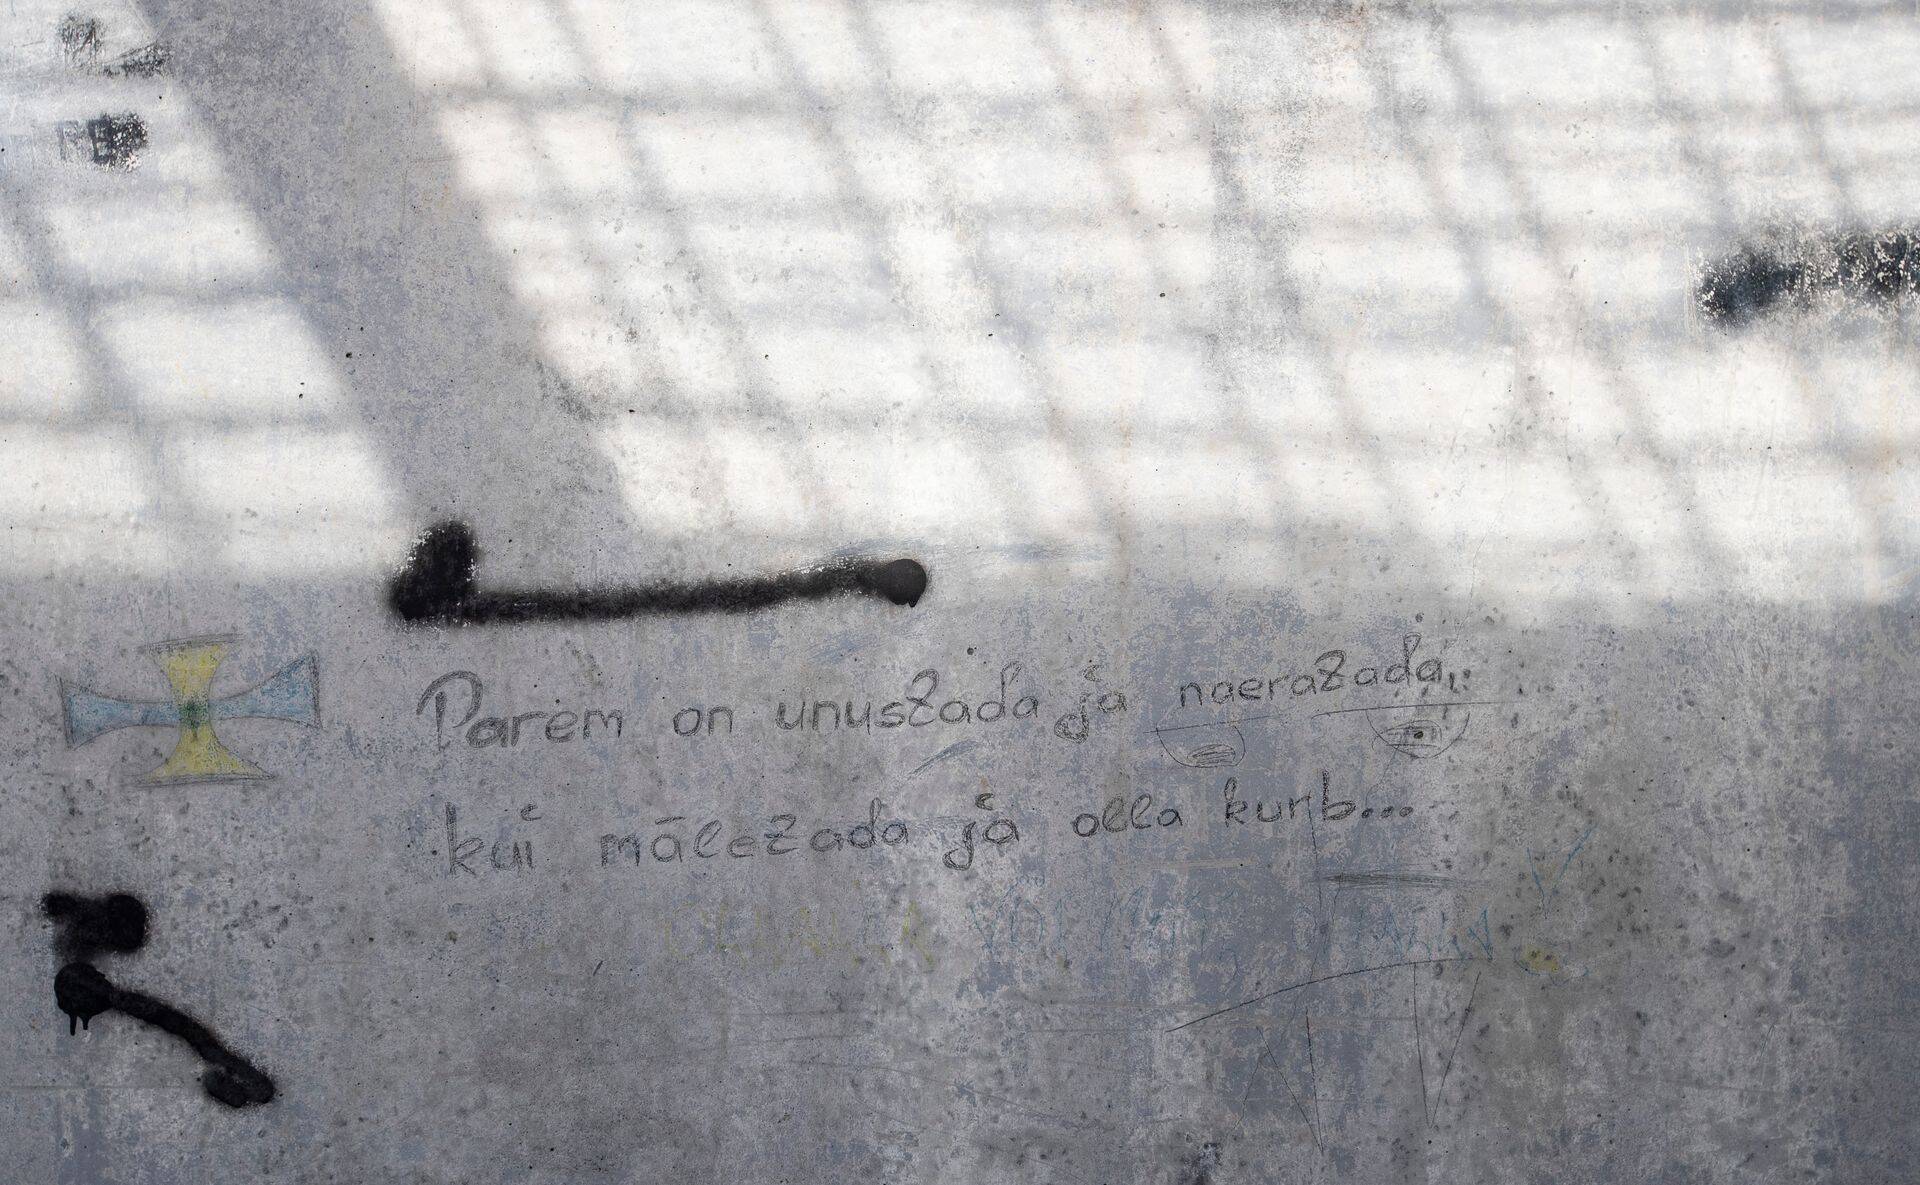 Parem on unustada ja naeratada,
kui mäletada ja olla kurb...